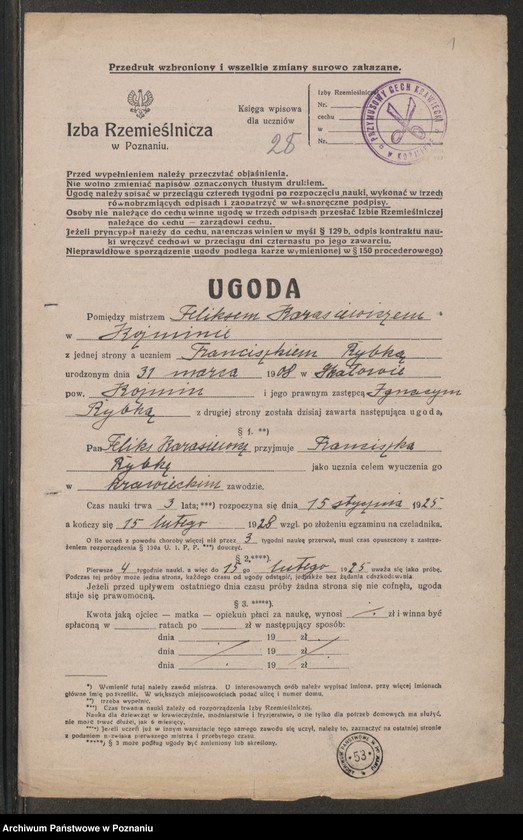 1
Przedruk wzbroniony i wszelkie zmiany surowo zakazane.
Izba Rzemieślnicza
w Poznaniu.
Księga wpisowa
dla uczniów
28
Izby Rzemieślnicz
Nr.
cechu
w
Nr.
PRZYMUSOWY CECH KRAWIECKI
Przed wypełnieniem należy przeczytać objaśnienia.
Nie wolno zmieniać napisów oznaczonych tłustym drukiem.
Ugodę należy spisać w przeciągu czterech tygodni po rozpoczęciu nauki, wykonać w trzech
równobrzmiących odpisach i zaopatrzyć w własnoręczne podpisy.
Osoby nie należące do cechu winne ugodę w trzech odpisach przesłać Izbie Rzemieślniczej
należące do cechu — zarządowi cechu.
Jeżeli pryncypał należy do cechu, natenczas winien w myśl § 129 b, odpis kontraktu nau-
ki wręczyć cechowi w przeciągu dni czternastu po jego zawarciu.
Nieprawidłowe sporządzenie ugody podlega karze wymienionej w § 150 procederowej
UGODA
Pomiędzy mistrzem Feliksem Karasiewiczem
w Kojminie
z jednej strony a uczniem Franciszkiem Rybką
urodzonym dnia 31 marca 1908 w Skałowie
pow. Kojmin i jego prawnym zastępcą Ignacym
Rybką z drugiej strony została dzisiaj zawarta następująca ugoda,
§ 1. **)
Pan Feliks Karasiewicz przyjmuje Franciszka
Rybkę jako ucznia celem wyuczenia go
w krawieckim zawodzie.
Czas nauki trwa 3 lata; ***) rozpoczyna się dnia 15 stycznia 1925
a kończy się 15 lutego 1928 wzgl. po złożeniu egzaminu na czeladnika.
O ile uczeń z powodu choroby więcej niż przez 3 tygodni naukę przerwał, musi czas opuszczony z zastrze-
żeniem rozporządzenia § 130a U. t. P. P. **) douczyć.
§ 2.****).
Pierwsze 4 tygodnie nauki, a więc do 15 go lutego 1925 uważa się jako próbę.
Podczas tej próby może jedna strona, każdego czasu od ugody odstąpić, jednakże bez żądania odszkodowania
Jeżeli przed upływem ostatniego dnia czasu próby żadna strona się nie cofnęła, ugoda
staje się prawomocną.
§ 3. *****).
Kwota jaką ojciec — matka — opiekun płaci za naukę, wynosi zł i winna być
spłaconą w ratach po zł w następujący sposób:
dnia 19 zł
dnia 19 zł
dnia 19 zł
*) Wymienić tutaj należy zawód mistrza. U interesownych osób należy wypisać imiona, przy więcej imionach
główne imię podkreślić. W większych miejscowościach podać ulicę i numer domu.
**) trzeba wypełnić.
***) Czas trwania nauki zależy od rozporządzenia Izby Rzemieślniczej.
Nauka dla dziewcząt w krawieczyźnie, modniarstwie i fryzjerstwie, o ile tylko dla potrzeb domowych ma służyć,
nie może trwać dłużej, jak 6 miesięcy.
****) Jeżeli uczeń już w innym warsztacie tego samego zawodu się uczył, należy to, zaznaczyć na ostatniej stronie
z podaniem nazwiska pierwszego mistrza i przebytego czasu.
*****) § 3 może podług ugody być zmieniony lub skreślony.
53
Archiwum Państwowe w Poznaniu